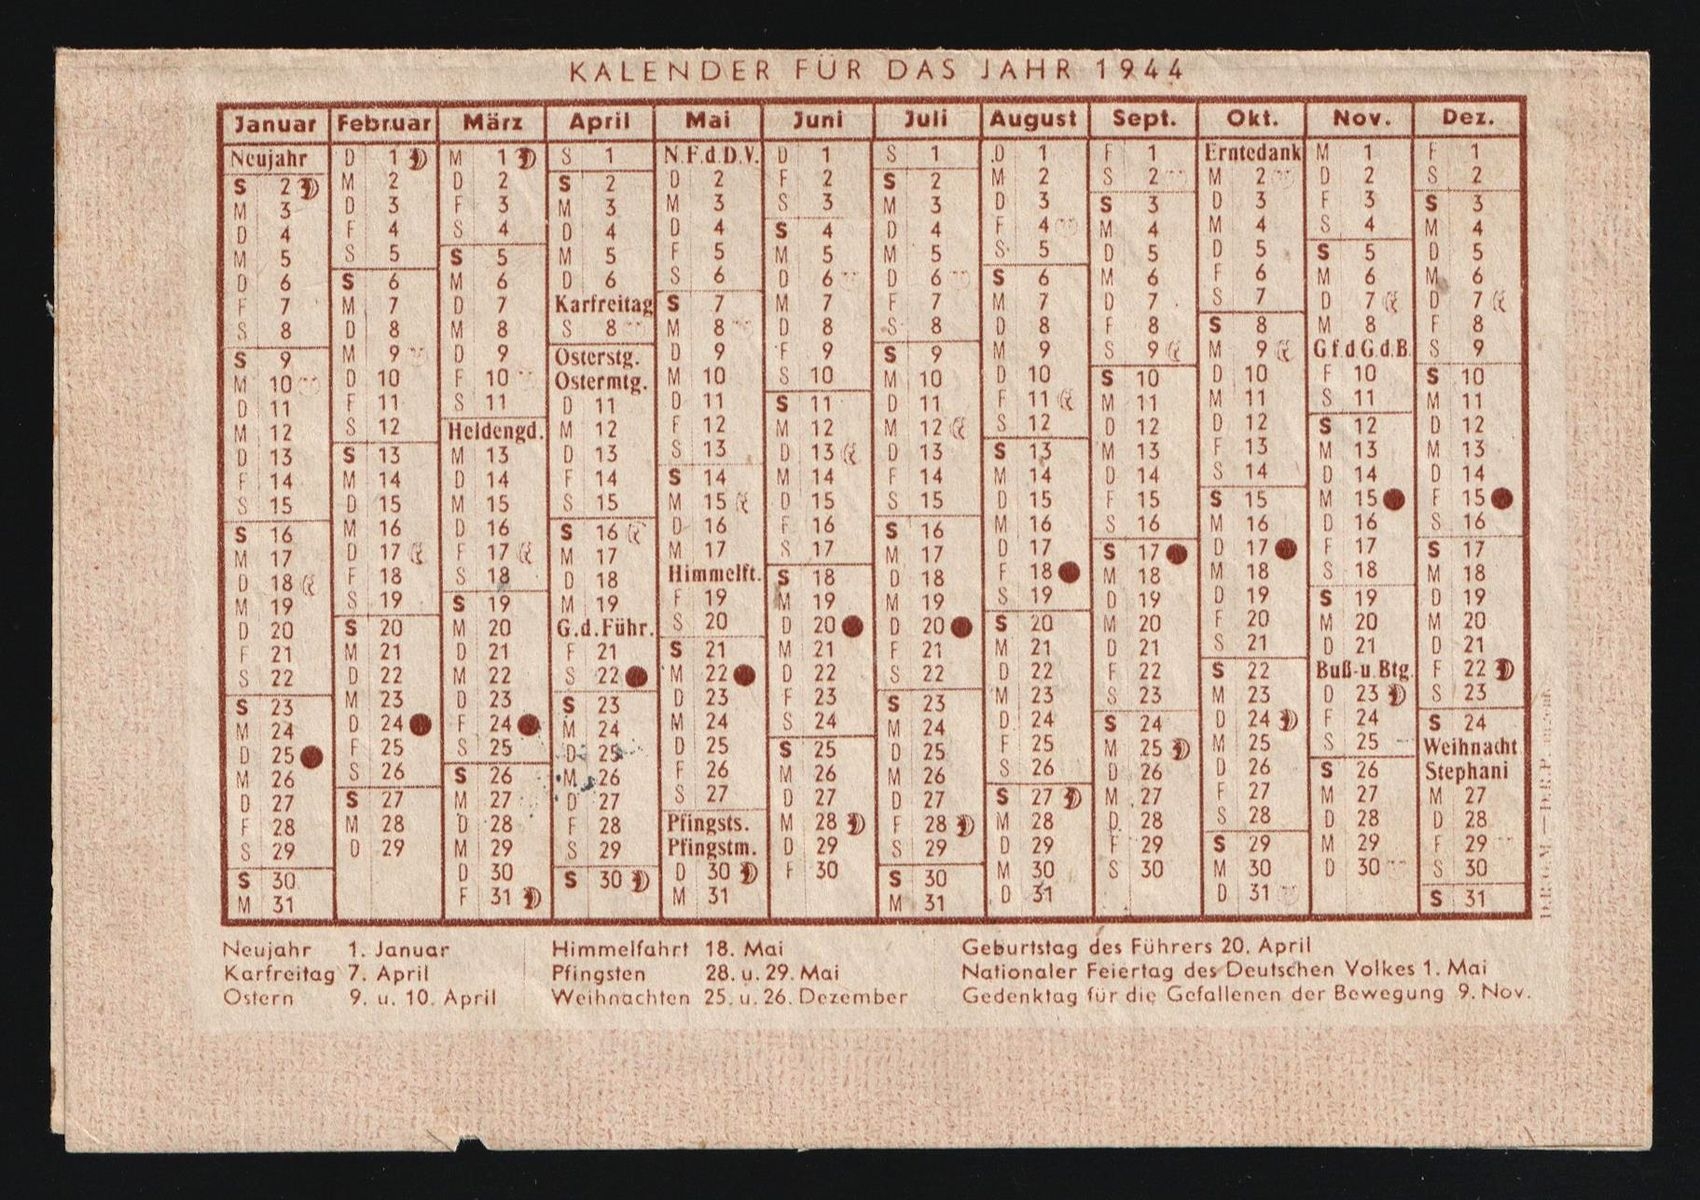 KALENDER FÜR DAS JAHR 1944
Januar Februar März April Mai Juni Juli August Sept. Okt. Nov. Dez.
Neujahr D 1 M 1 S 1 N.F.d.D.V. D 1 S 1 D 1 F 1 Erntedank M 1 F 1
S 2 M 2 D 2 S 2 D 2 F 2 S 2 M 2 S 2 M 2 D 2 S 2
M 3 D 3 F 3 M 3 M 3 S 3 M 3 D 3 S 3 D 3 F 3 S 3
D 4 F 4 S 4 D 4 D 4 S 4 D 4 F 4 M 4 M 4 S 4 M 4
M 5 S 5 S 5 M 5 F 5 M 5 M 5 S 5 D 5 D 5 S 5 D 5
D 6 S 6 M 6 D 6 S 6 D 6 D 6 S 6 M 6 F 6 M 6 M 6
F 7 M 7 D 7 Karfreitag S 7 M 7 F 7 M 7 D 7 S 7 D 7 D 7
S 8 D 8 M 8 S 8 M 8 D 8 S 8 D 8 F 8 S 8 M 8 F 8
S 9 M 9 D 9 Osterstg. D 9 F 9 S 9 M 9 S 9 M 9 G.f.d.G.d.B. S 9
M 10 D 10 F 10 Ostermtg. M 10 S 10 M 10 D 10 S 10 D 10 F 10 S 10
D 11 F 11 S 11 D 11 D 11 S 11 D 11 F 11 M 11 M 11 S 11 M 11
M 12 S 12 Heldengd. M 12 F 12 M 12 M 12 S 12 D 12 D 12 S 12 D 12
D 13 S 13 M 13 D 13 S 13 D 13 D 13 S 13 M 13 F 13 M 13 M 13
F 14 M 14 D 14 F 14 S 14 M 14 F 14 M 14 D 14 S 14 D 14 D 14
S 15 D 15 M 15 S 15 M 15 D 15 S 15 D 15 F 15 S 15 M 15 F 15
S 16 M 16 D 16 S 16 D 16 F 16 S 16 M 16 S 16 M 16 D 16 S 16
M 17 D 17 F 17 M 17 M 17 S 17 M 17 D 17 S 17 D 17 F 17 S 17
D 18 F 18 S 18 D 18 Himmelft. S 18 D 18 F 18 M 18 M 18 S 18 M 18
M 19 S 19 S 19 M 19 F 19 M 19 M 19 S 19 D 19 D 19 S 19 D 19
D 20 S 20 M 20 G.d.Führ. S 20 D 20 D 20 S 20 M 20 F 20 M 20 M 20
F 21 M 21 D 21 F 21 S 21 M 21 F 21 M 21 D 21 S 21 D 21 D 21
S 22 D 22 M 22 S 22 M 22 D 22 S 22 D 22 F 22 S 22 Buß-u.Btg. F 22
S 23 M 23 D 23 S 23 D 23 F 23 S 23 M 23 S 23 M 23 D 23 S 23
M 24 D 24 F 24 M 24 M 24 S 24 M 24 D 24 S 24 D 24 F 24 S 24
D 25 F 25 S 25 D 25 D 25 S 25 D 25 F 25 M 25 M 25 S 25 Weihnacht
M 26 S 26 S 26 M 26 F 26 M 26 M 26 S 26 D 26 D 26 S 26 Stephani
D 27 S 27 M 27 D 27 S 27 D 27 D 27 S 27 M 27 F 27 M 27 M 27
F 28 M 28 D 28 F 28 Pfingsts. M 28 F 28 M 28 D 28 S 28 D 28 D 28
S 29 D 29 M 29 S 29 Pfingstm. D 29 S 29 D 29 F 29 S 29 M 29 F 29
S 30 D 30 S 30 D 30 F 30 S 30 M 30 S 30 M 30 D 30 S 30
M 31 F 31 M 31 M 31 D 31 D 31 S 31
Neujahr 1. Januar Himmelfahrt 18. Mai Geburtstag des Führers 20. April
Karfreitag 7. April Pfingsten 28. u. 29. Mai Nationaler Feiertag des Deutschen Volkes 1. Mai
Ostern 9. u. 10. April Weihnachten 25. u. 26. Dezember Gedenktag für die Gefallenen der Bewegung 9. Nov.